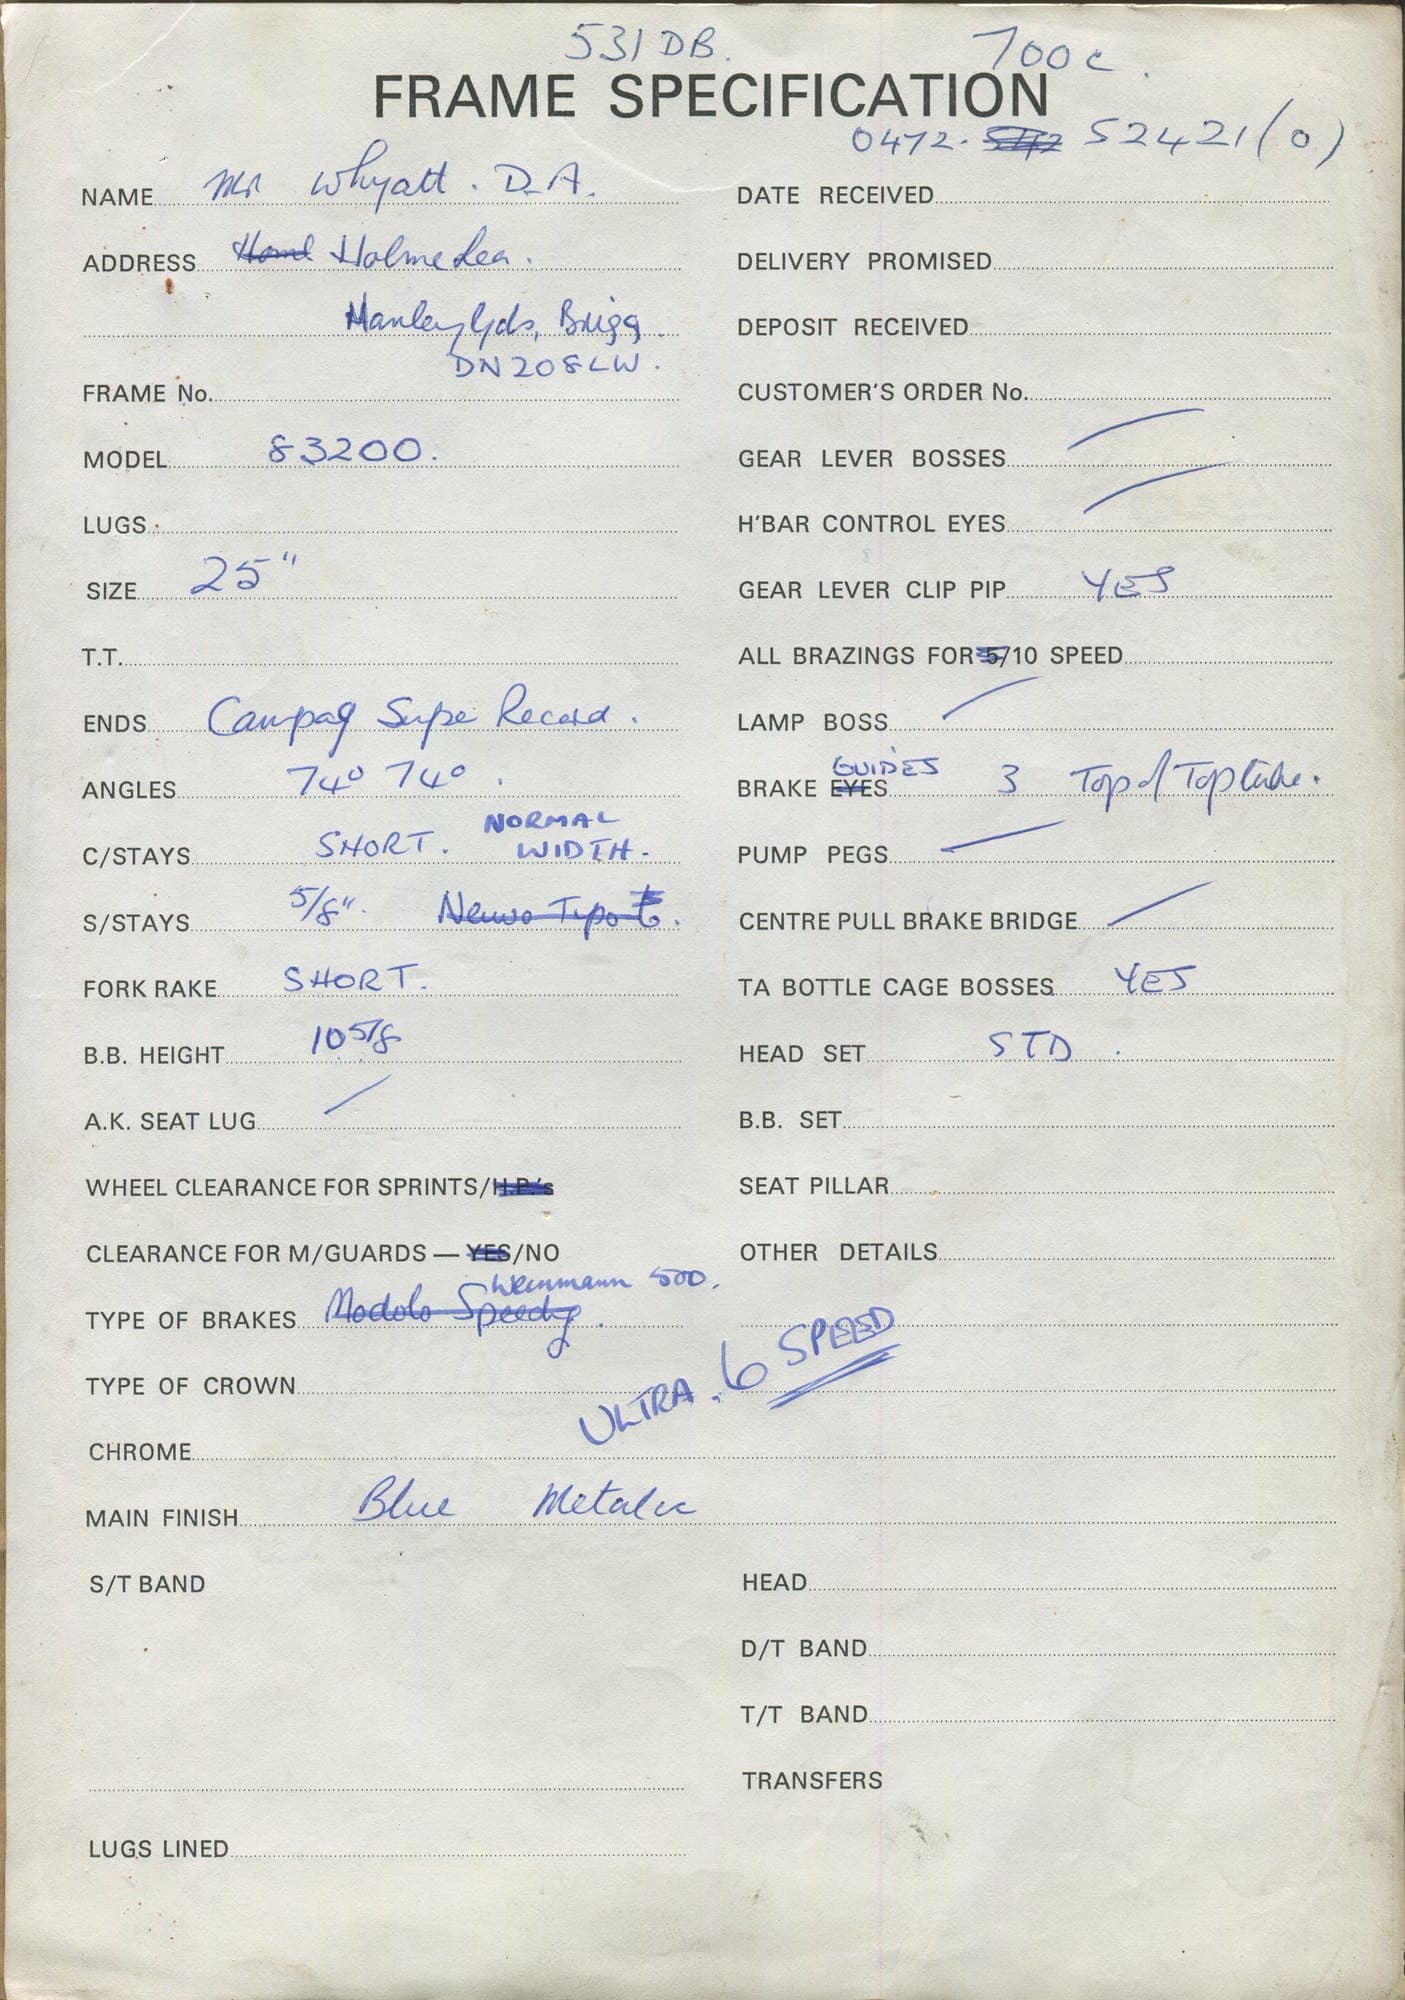 531 DB. 700c.
FRAME SPECIFICATION
0472. 52421(0)
NAME Mr Whyatt. D.A.
ADDRESS Holme Lea.
Hanley Gds, Brigg.
DN20 8LW.
FRAME No.
MODEL 83200.
LUGS
SIZE 25"
T.T.
ENDS Campag Supe Record.
ANGLES 74° 74°.
C/STAYS SHORT. NORMAL WIDTH.
S/STAYS 5/8". Neuvo Tipo
FORK RAKE SHORT.
B.B. HEIGHT 10 5/8
A.K. SEAT LUG /
WHEEL CLEARANCE FOR SPRINTS/H.P.'s
CLEARANCE FOR M/GUARDS — YES/NO
Weinmann 500.
TYPE OF BRAKES Modolo Speedy.
TYPE OF CROWN
ULTRA. 6 SPEED
CHROME
MAIN FINISH Blue Metalic
S/T BAND
LUGS LINED
DATE RECEIVED
DELIVERY PROMISED
DEPOSIT RECEIVED
CUSTOMER'S ORDER No.
GEAR LEVER BOSSES /
H'BAR CONTROL EYES /
GEAR LEVER CLIP PIP YES
ALL BRAZINGS FOR 5/10 SPEED
LAMP BOSS /
GUIDES
BRAKE EYES 3 Top of Top tube.
PUMP PEGS /
CENTRE PULL BRAKE BRIDGE /
TA BOTTLE CAGE BOSSES YES
HEAD SET STD.
B.B. SET
SEAT PILLAR
OTHER DETAILS
HEAD
D/T BAND
T/T BAND
TRANSFERS